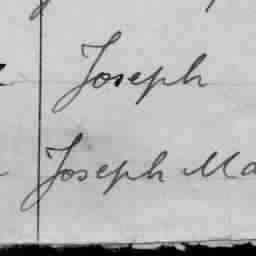 Joseph
Joseph Ma